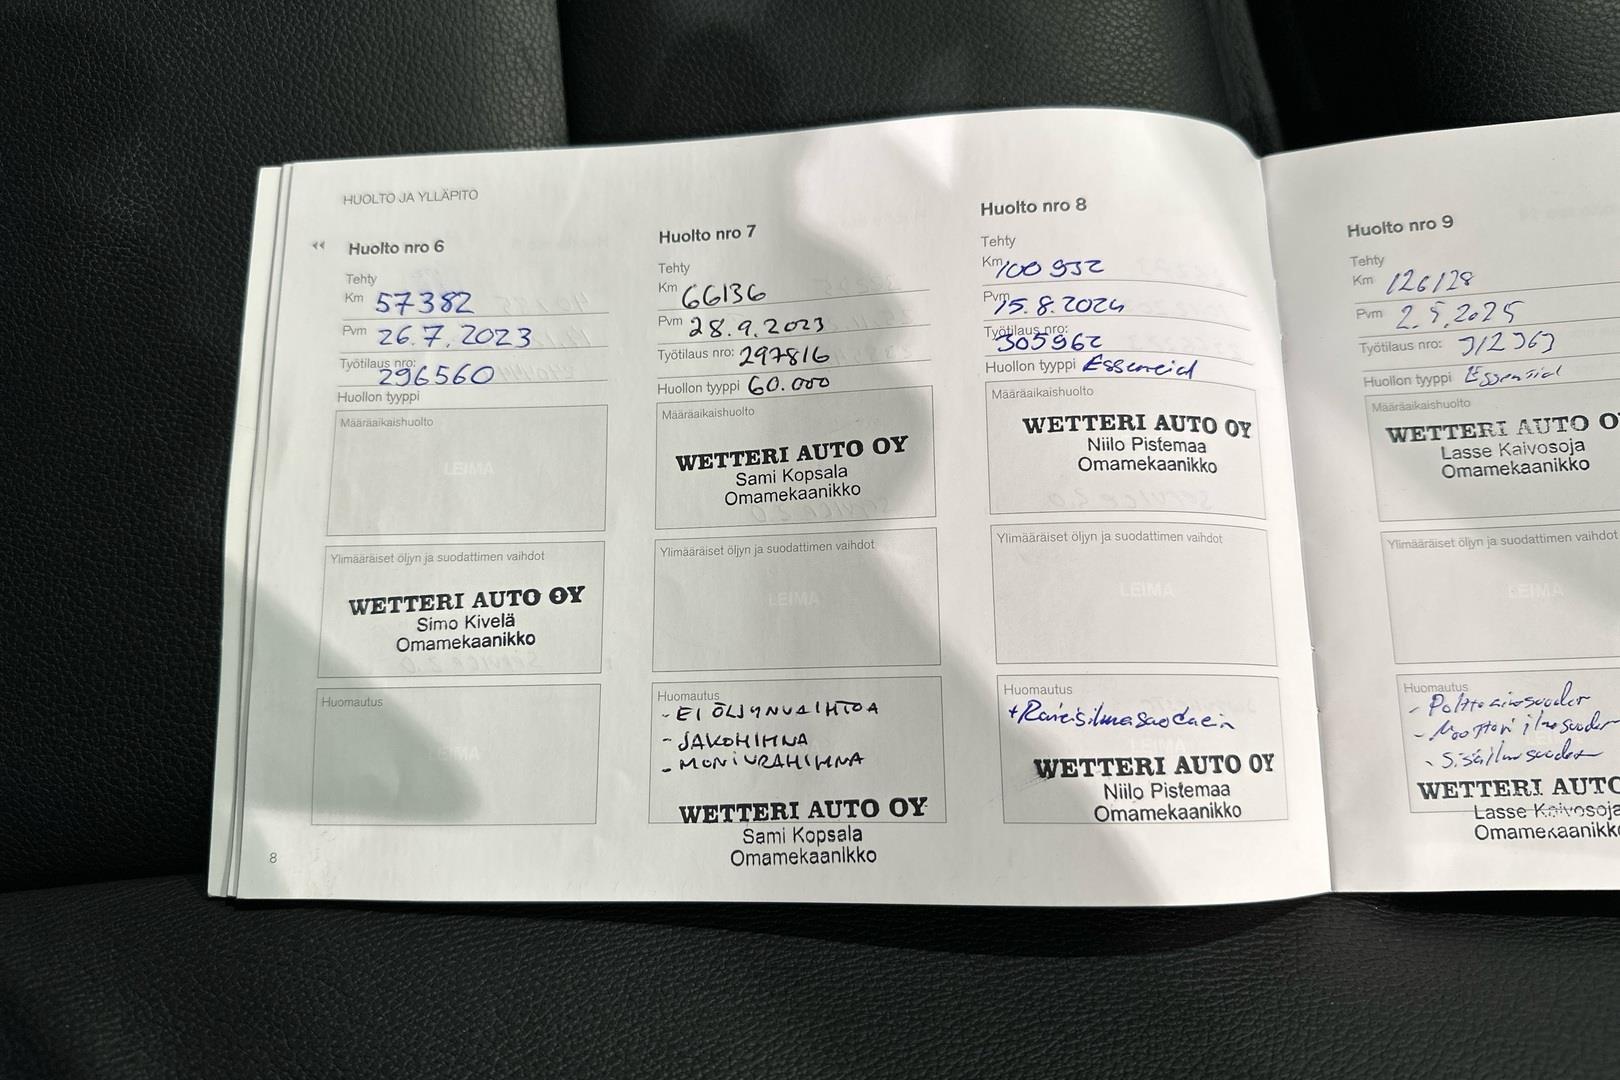 HUOLTO JA YLLÄPITO
Huolto nro 6
Tehty
Km 57382
Pvm 26.7.2023
Työtilaus nro: 296560
Huollon tyyppi
Määräaikaishuolto
LEIMA
Ylimääräiset öljyn ja suodattimen vaihdot
WETTERI AUTO OY
Simo Kivelä
Omamekaanikko
Huomautus
LEIMA
8
Huolto nro 7
Tehty
Km 66136
Pvm 28.9.2023
Työtilaus nro: 297816
Huollon tyyppi 60.000
Määräaikaishuolto
WETTERI AUTO OY
Sami Kopsala
Omamekaanikko
Ylimääräiset öljyn ja suodattimen vaihdot
LEIMA
Huomautus
- EI ÖLJYNVAIHTOA
- JAKOHIHNA
- MONIURAHIHNA
WETTERI AUTO OY
Sami Kopsala
Omamekaanikko
Huolto nro 8
Tehty
Km 100 932
Pvm 15.8.2024
Työtilaus nro: 305962
Huollon tyyppi
Määräaikaishuolto
WETTERI AUTO OY
Niilo Pistemaa
Omamekaanikko
Ylimääräiset öljyn ja suodattimen vaihdot
LEIMA
Huomautus
WETTERI AUTO OY
Niilo Pistemaa
Omamekaanikko
Huolto nro 9
Tehty
Km 126128
Pvm 2.5.2025
Työtilaus nro: 312363
Huollon tyyppi
Määräaikaishuolto
WETTERI AUTO O
Lasse Kaivosoja
Omamekaanikko
Ylimääräiset öljyn ja suodattimen vaihdot
LEIMA
Huomautus
WETTERI AUTO
Lasse Kaivosoja
Omamekaanikk